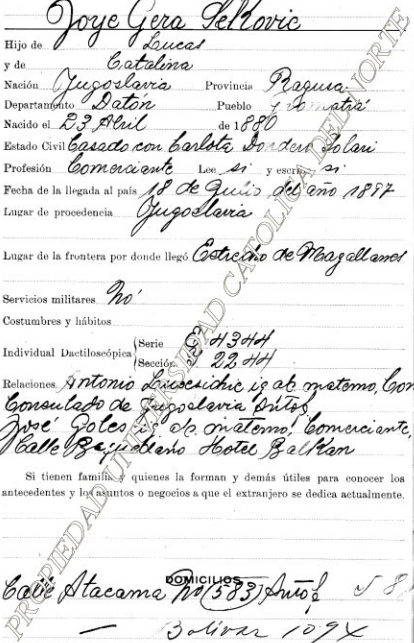 Joye Gera Selkovic
Hijo de Lucas
y de Catalina
Nación Yugoslavia Provincia Ragusa
Departamento Datón Pueblo
Nacido el 23 Abril de 1880
Estado Civil Casado con Carlota Dondero Solari
Profesión Comerciante Lee si y escribe si
Fecha de la llegada al país 18 de Julio del año 1897
Lugar de procedencia Yugoslavia
Lugar de la frontera por donde llegó Estrecho de Magallanes
Servicios militares No
Costumbres y hábitos
Individual Dactiloscópica Serie 4344
Sección 2244
Relaciones Antonio ab. materno, Con
Consulado de Yugoslavia Antof
José Goles ab. materno, Comerciante,
Calle Baquedano Hotel Balkan
Si tienen familia, quienes la forman y demás útiles para conocer los
antecedentes y los asuntos o negocios a que el extranjero se dedica actualmente.
DOMICILIOS
Calle Atacama No (583) Antof
— Bolívar
PROPIEDAD UNIVERSIDAD CATOLICA DEL NORTE